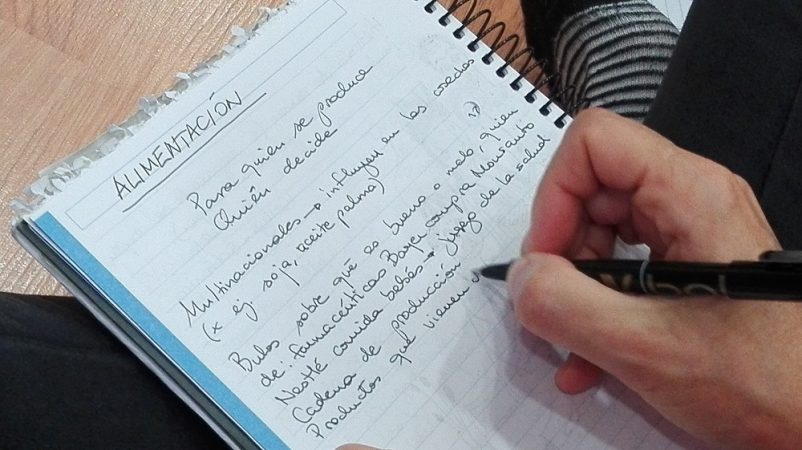 ALIMENTACIÓN
Para quien se produce
Quién decide
Multinacionales → influyen en las
(x ej. soja, aceite palma)
Bulos sobre qué es bueno o malo, quien
de: farmacéuticas Bayer compra Monsanto
Nestlé comida bebés → juego de la salud
Cadena de producción
Productos que vienen